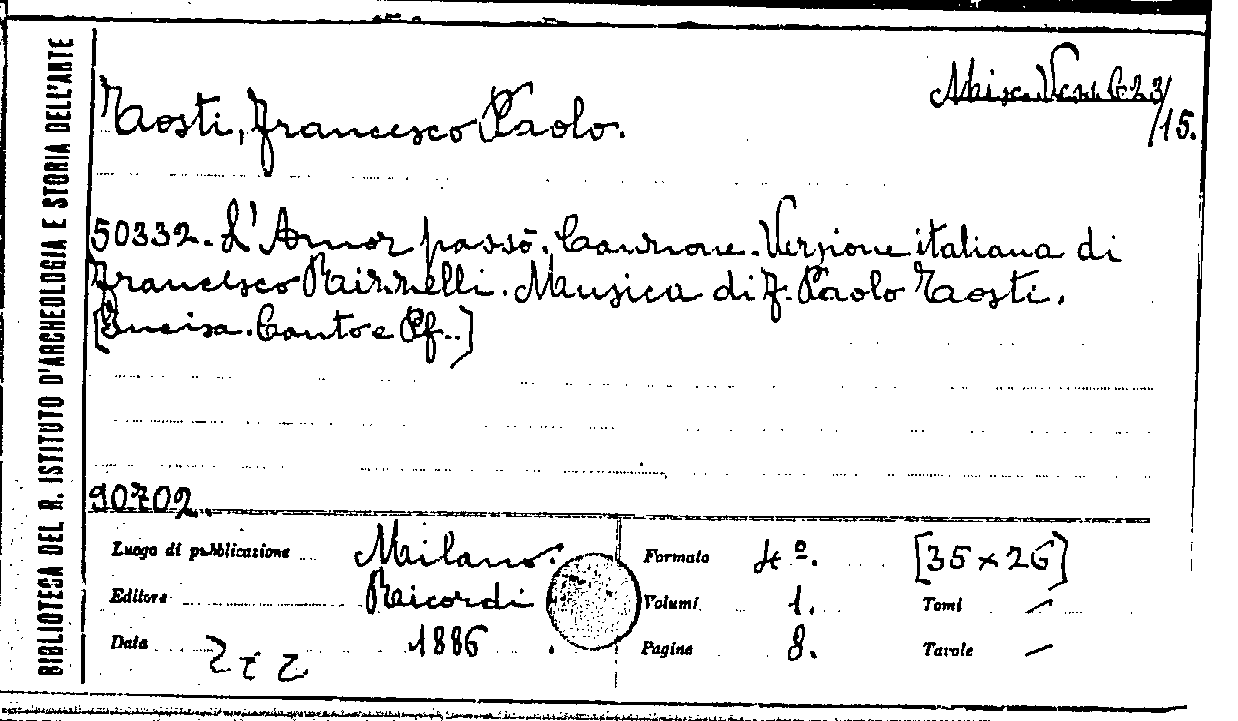 BIBLIOTECA DEL R. ISTITUTO D'ARCHEOLOGIA E STORIA DELL'ARTE
Misc. Vess. B23/15.
Tosti, Francesco Paolo.
50332. L'Amor passò. Canzone. Versione italiana di
Francesco Rizzelli. Musica di F. Paolo Tosti.
[Incisa. Canto e Pf..]
90702.
Luogo di pubblicazione Milano.
Editore Ricordi
Data 1886.
Formato 4º. [35 x 26]
Volumi 1. Tomi —
Pagine 8. Tavole —